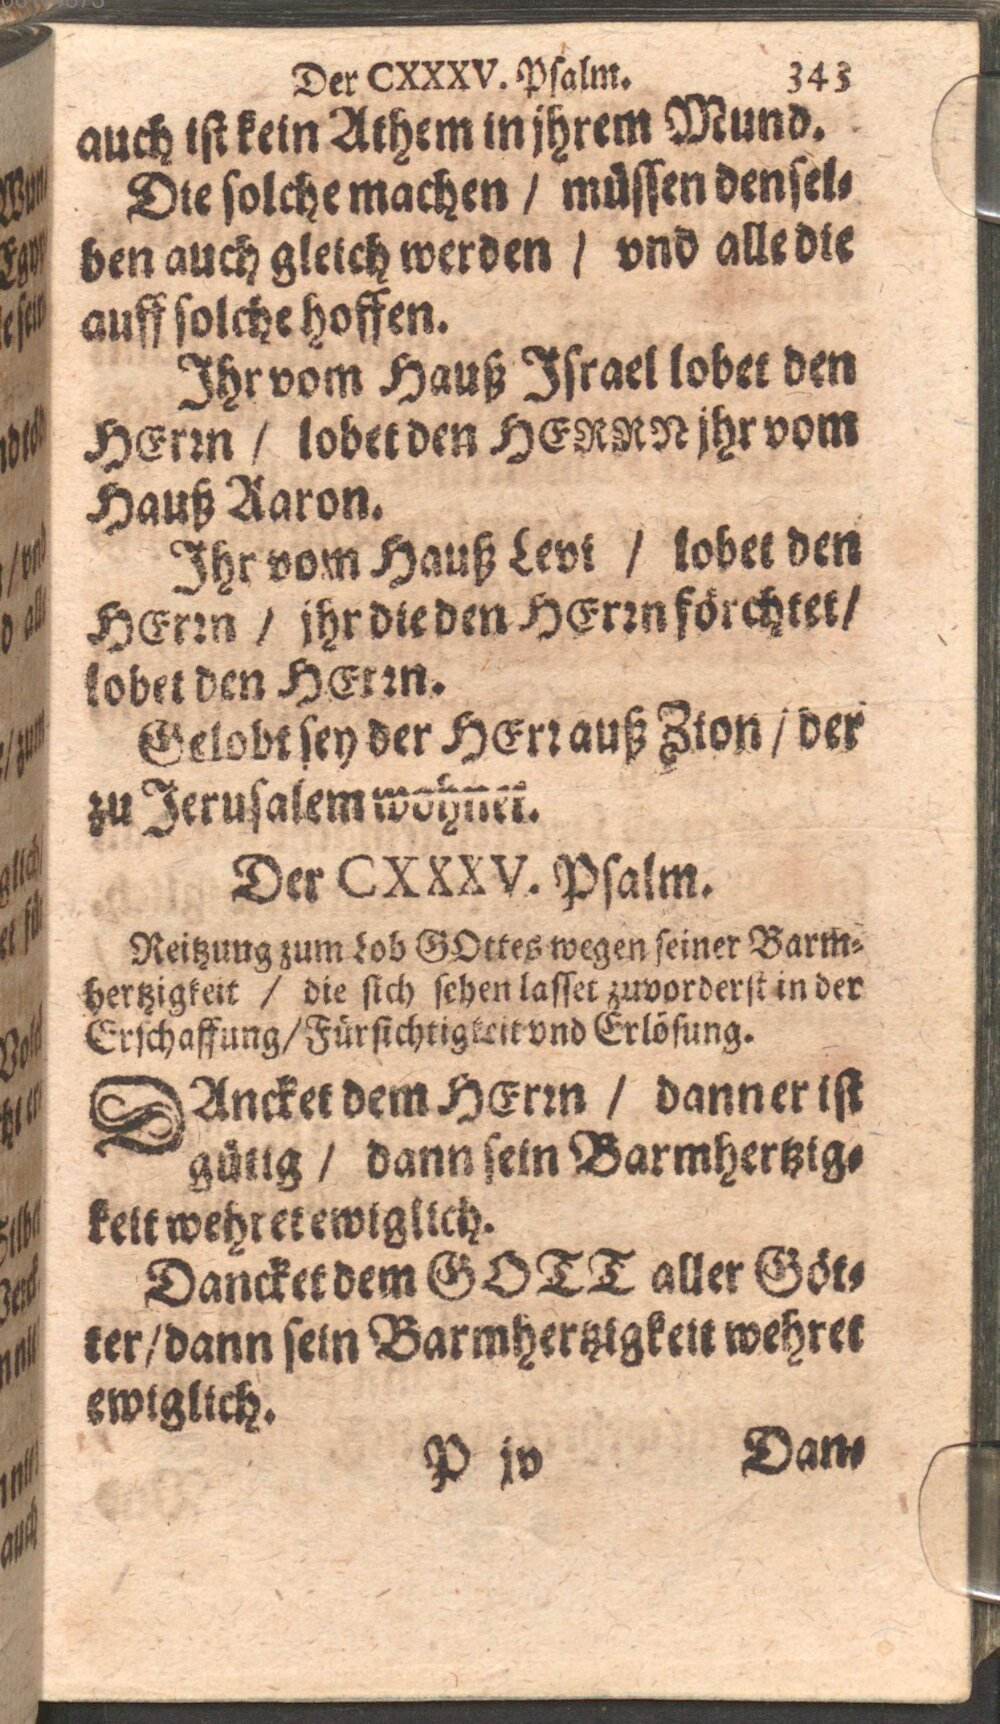 Der CXXXV. Psalm. 343
auch ist kein Athem in jhrem Mund.
Die solche machen / müssen densel-
ben auch gleich werden / vnd alle die
auff solche hoffen.
Ihr vom Hauß Israel lobet den
HErrn / lobet den HERRN jhr vom
Hauß Aaron.
Ihr vom Hauß Levi / lobet den
HErrn / jhr die den HErrn förchtet /
lobet den HErrn.
Gelobt sey der HErr auß Zion / der
zu Jerusalem wohnet.
Der CXXXV. Psalm.
Reitzung zum Lob GOttes wegen seiner Barm-
hertzigkeit / die sich sehen lasset zuvorderst in der
Erschaffung / Fürsichtigkeit vnd Erlösung.
DAncket dem HErrn / dann er ist
gütig / dann sein Barmhertzig-
keit wehret ewiglich.
Dancket dem GOTT aller Göt-
ter / dann sein Barmhertzigkeit wehret
ewiglich.
P jv Dan-